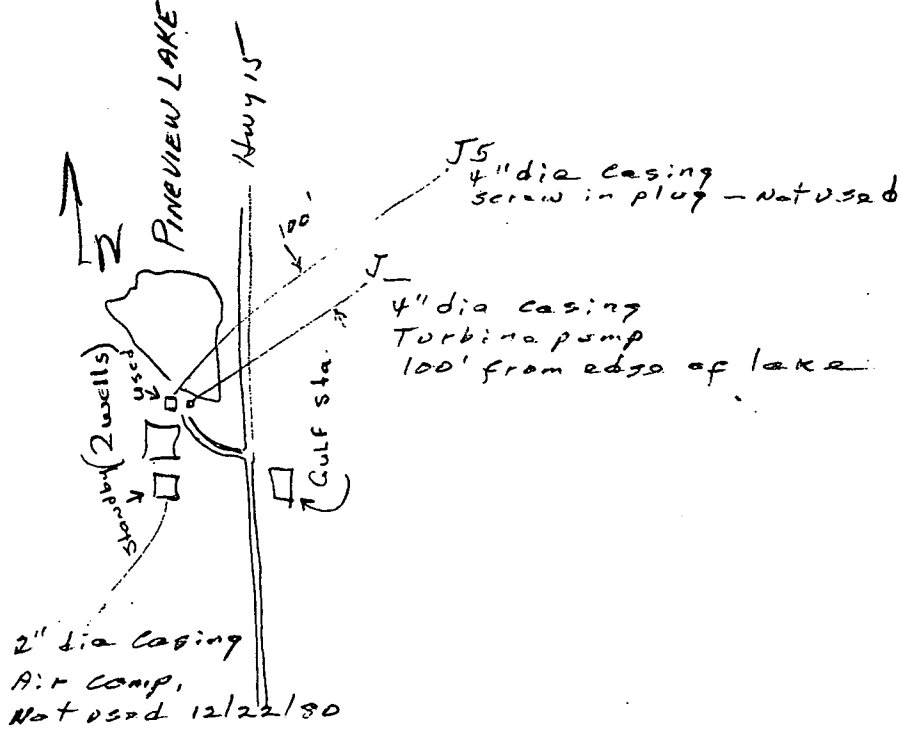 PINEVIEW LAKE
Hwy 15
N
100'
J5
4" dia casing
screw in plug - Not used
J_
4" dia casing
Turbine pump
100' from edge of lake
used
(2 wells)
Standby
Gulf Sta.
2" dia Casing
Air comp,
Not used 12/22/80